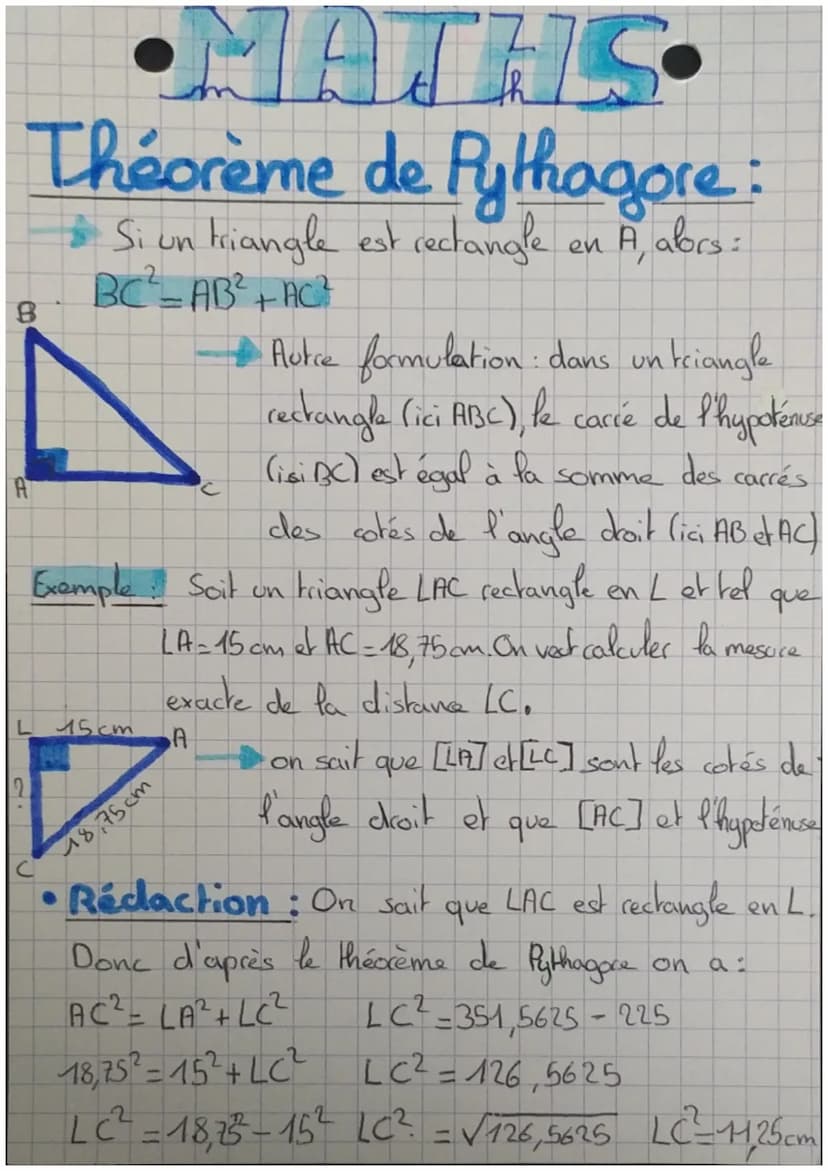 MATHS
maths
Théorème de Pythagore :
→ Si un triangle est rectangle en A, alors :
BC² = AB² + AC²
B
A
C
→ Autre formulation : dans un triangle
rectangle (ici ABC), le carré de l'hypoténuse
(isi BC) est égal à la somme des carrés
des cotés de l'angle droit (ici AB et AC)
Exemple : Soit un triangle LAC rectangle en L et tel que
LA = 15 cm et AC = 18,75 cm. On veut calculer la mesure
exacte de la distance LC.
L 15cm A
?
18,75cm
C
→ on sait que [LA] et [LC] sont les cotés de
l'angle droit et que [AC] et l'hypoténuse
• Rédaction : On sait que LAC est rectangle en L.
Donc d'après le théorème de Pythagore on a :
AC² = LA² + LC² LC² = 351,5625 - 225
18,75² = 15² + LC² LC² = 126,5625
LC² = 18,75² - 15² LC² = √126,5625 LC² = 11,25cm